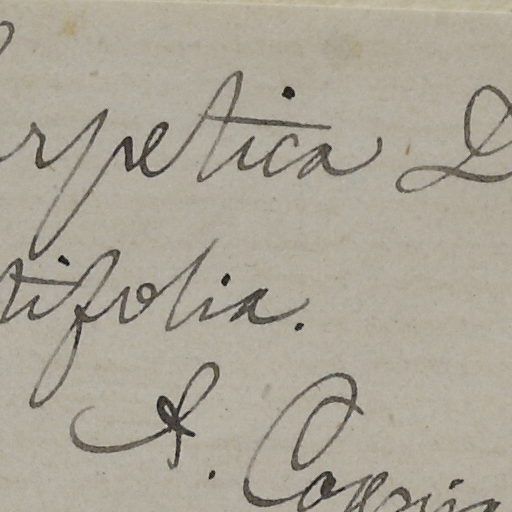 rpetica L
tifolia.
A. Cognia